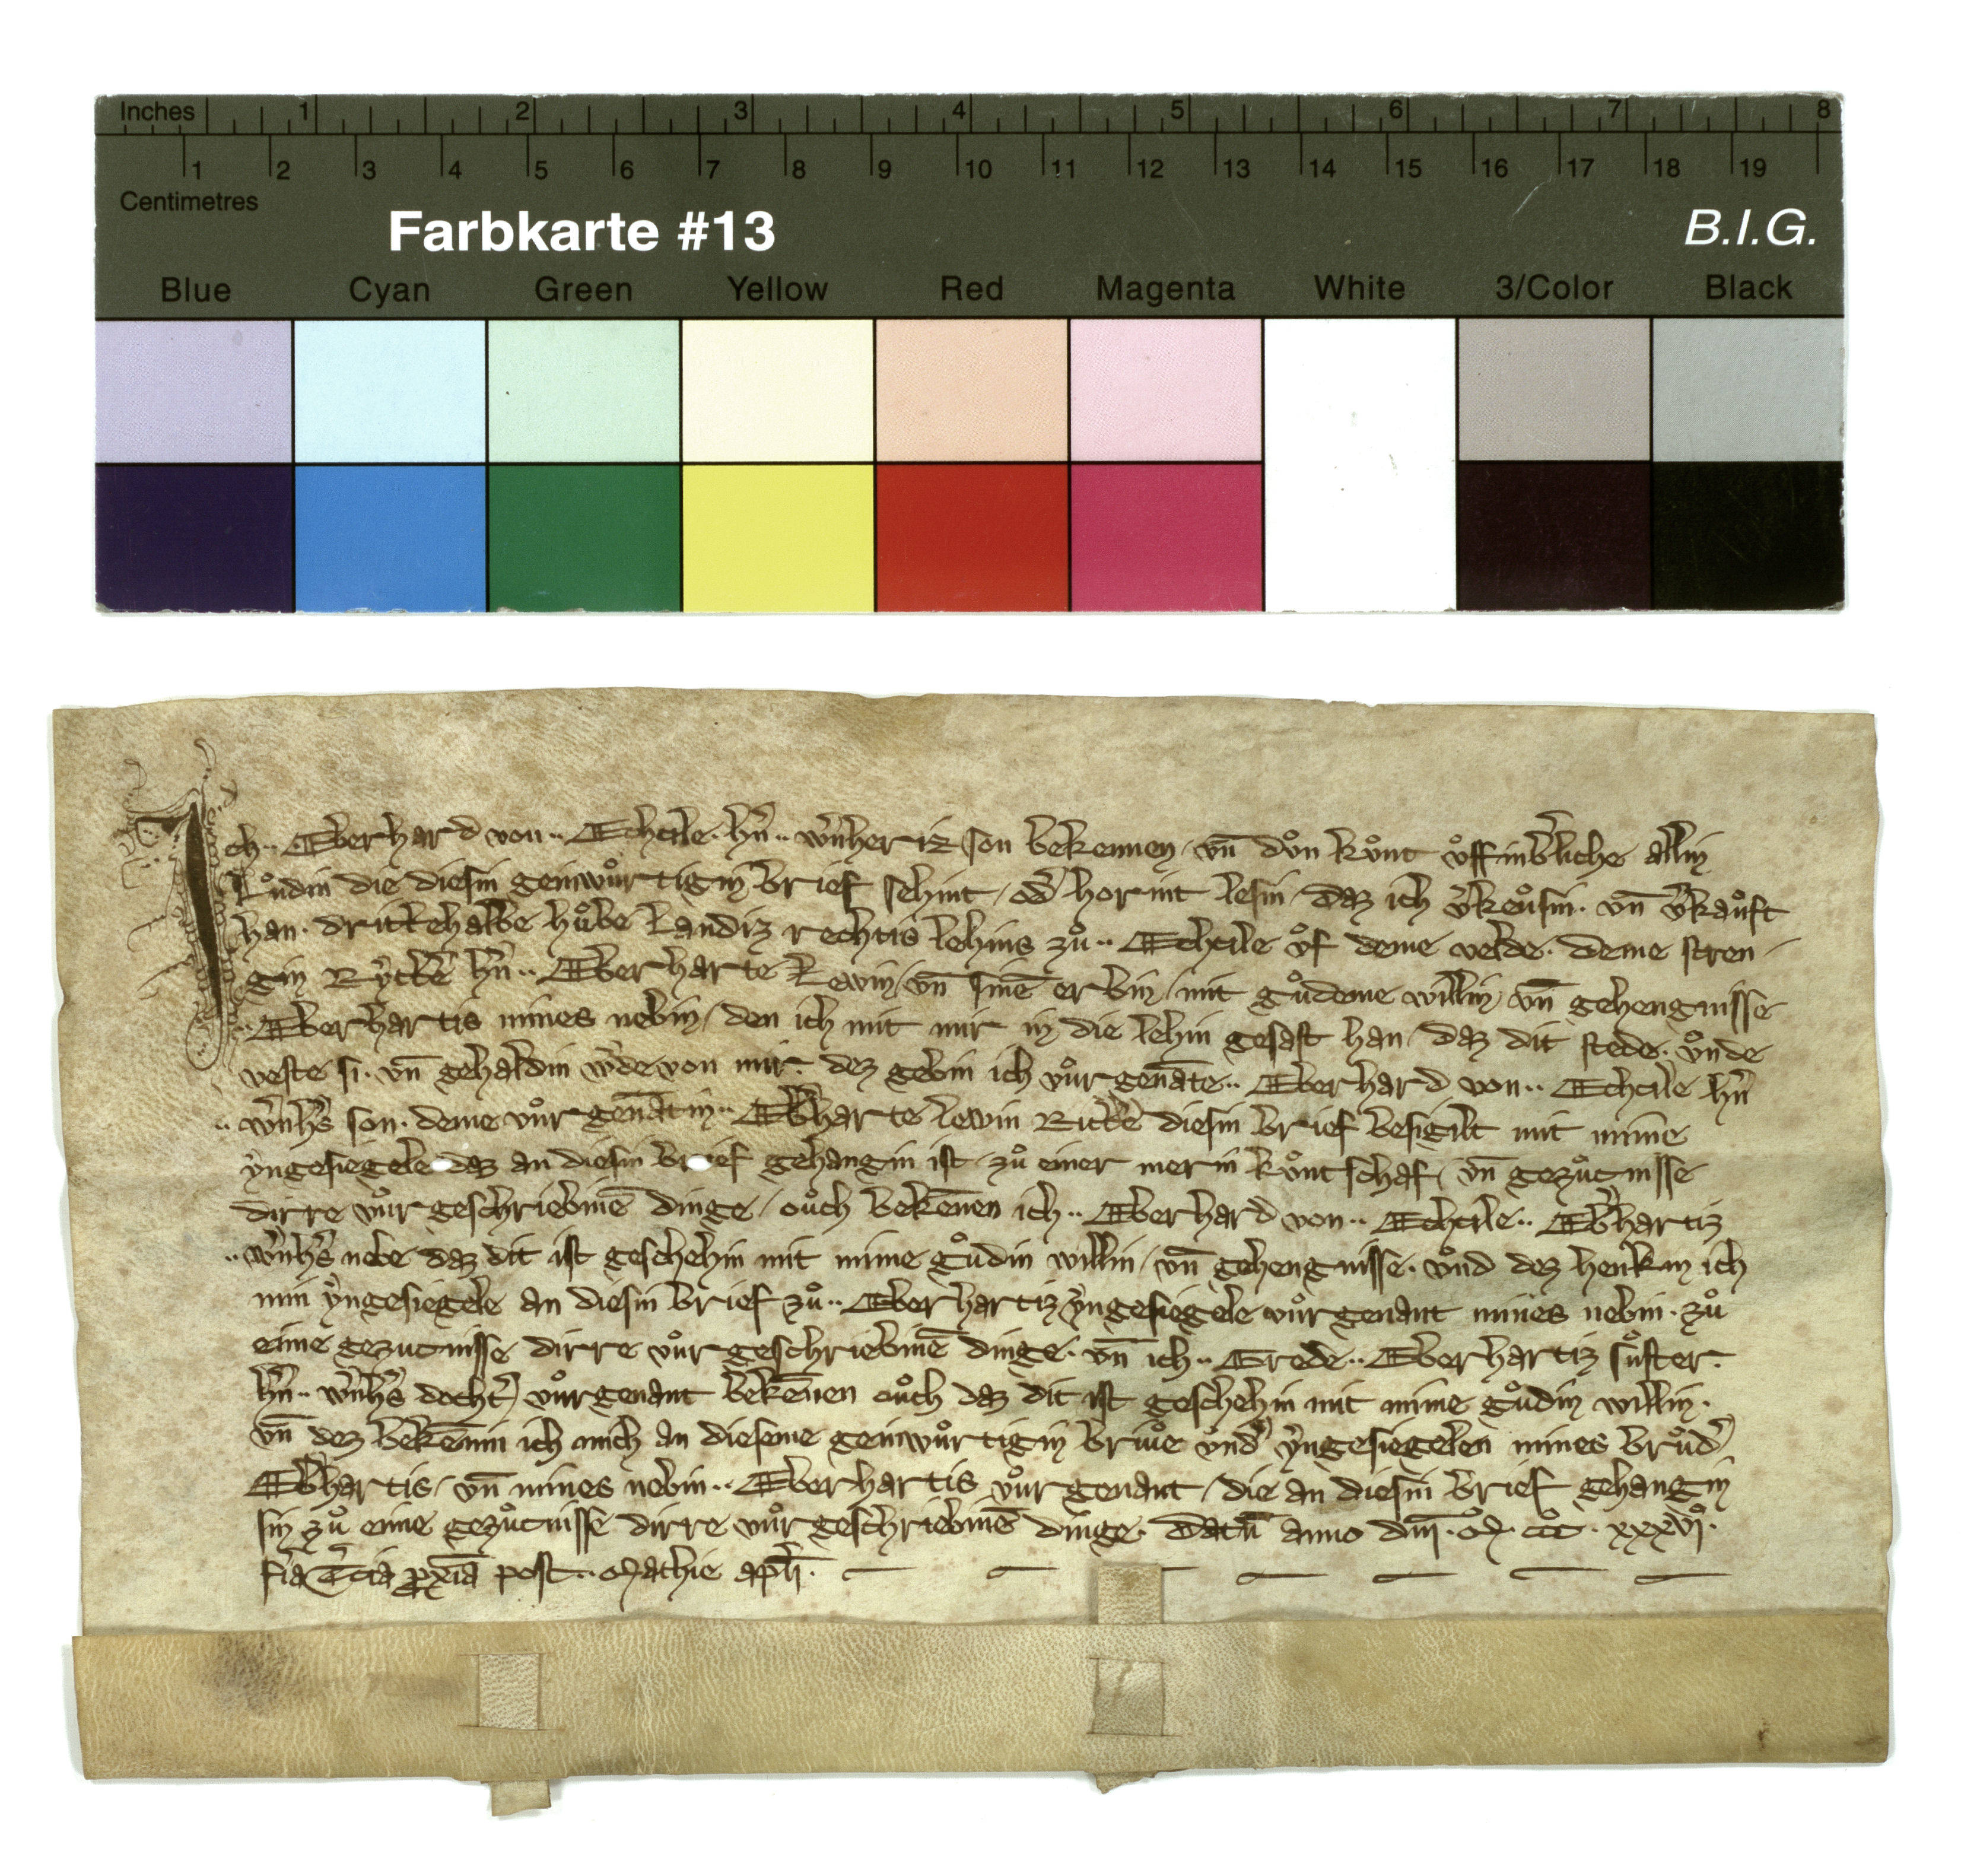 Inches 1 2 3 4 5 6 7 8
1 2 3 4 5 6 7 8 9 10 11 12 13 14 15 16 17 18 19
Centimetres
Farbkarte #13 B.I.G.
Blue Cyan Green Yellow Red Magenta White 3/Color Black
Ich·· Eberhard von·· Echcile· hn̄·· wn̄heriz son bekennen / vn̄ důn kůnt ůffinb̄liche allin
Lůdin die diesin geinwůrtigin brief sehint / od̄ horint lesin / daz ich v̄keůfin· vn̄ v̄kaůft
han· drittehalbe hůbe Landiz rechtis lehins zů·· Echcile ůf deme velde· deme stren /
gin Ritt̄e hn̄·· Eberharte Lewin / vn̄ sinē erbin / mit gůdeme willin / vn̄ gehengnisse
·· Eberhartis mines nebin / den ich mit mir in die lehin gesast han / daz dit stede· ůnde
veste si· vn̄ gehaldin w̄de von mir· dez gebin ich vůrgenāte·· Eberhard von·· Echcile hn̄
·· wn̄hs̄ son· deme vůrgenātin·· Eb̄harte lewin Ritt̄e diesin brief besigilt mit mime
ẙngesiegele daz an diesin brief gehangin ist / zů einer merin kůntschaf / vn̄ gezůcnisse
dirre vůrgeschriebinē dinge / oůch bekēnen ich·· Eberhard von·· Echcile·· Eb̄hartiz
·· wn̄hs̄ nebe daz dit ist geschehin mit mime gůdin willin / vn̄ gehengnisse· vůnd dez henkin ich
min ẙngesiegele an diesin brief zů·· Eberhartiz ẙngesiegele vůrgenant mines nebin· zů
eime gezucnisse dirre vůrgeschriebinē dinge· vn̄ ich·· Grede·· Eberhartiz sůster·
hn̄·· wn̄hs̄ docht̄ vůrgenant bekēnen oůch daz dit ist geschehin mit mime gůdin willin·
vn̄ dez bekēnin ich mich an dieseme geinwůrtigin briue ůnd̄ ẙngesiegelen mines brůd̄
Eb̄hartis / vn̄ mines nebin·· Eberhartis vůrgenant / die an diesin brief gehangin
sin zů eime gezůcnisse dirre vůrgeschriebinē dinge· Datū anno dnī· M̊· CCC̊· xxxvi̊·
fīa t̄cia p̱xīa post·· Mathie apl̄i·